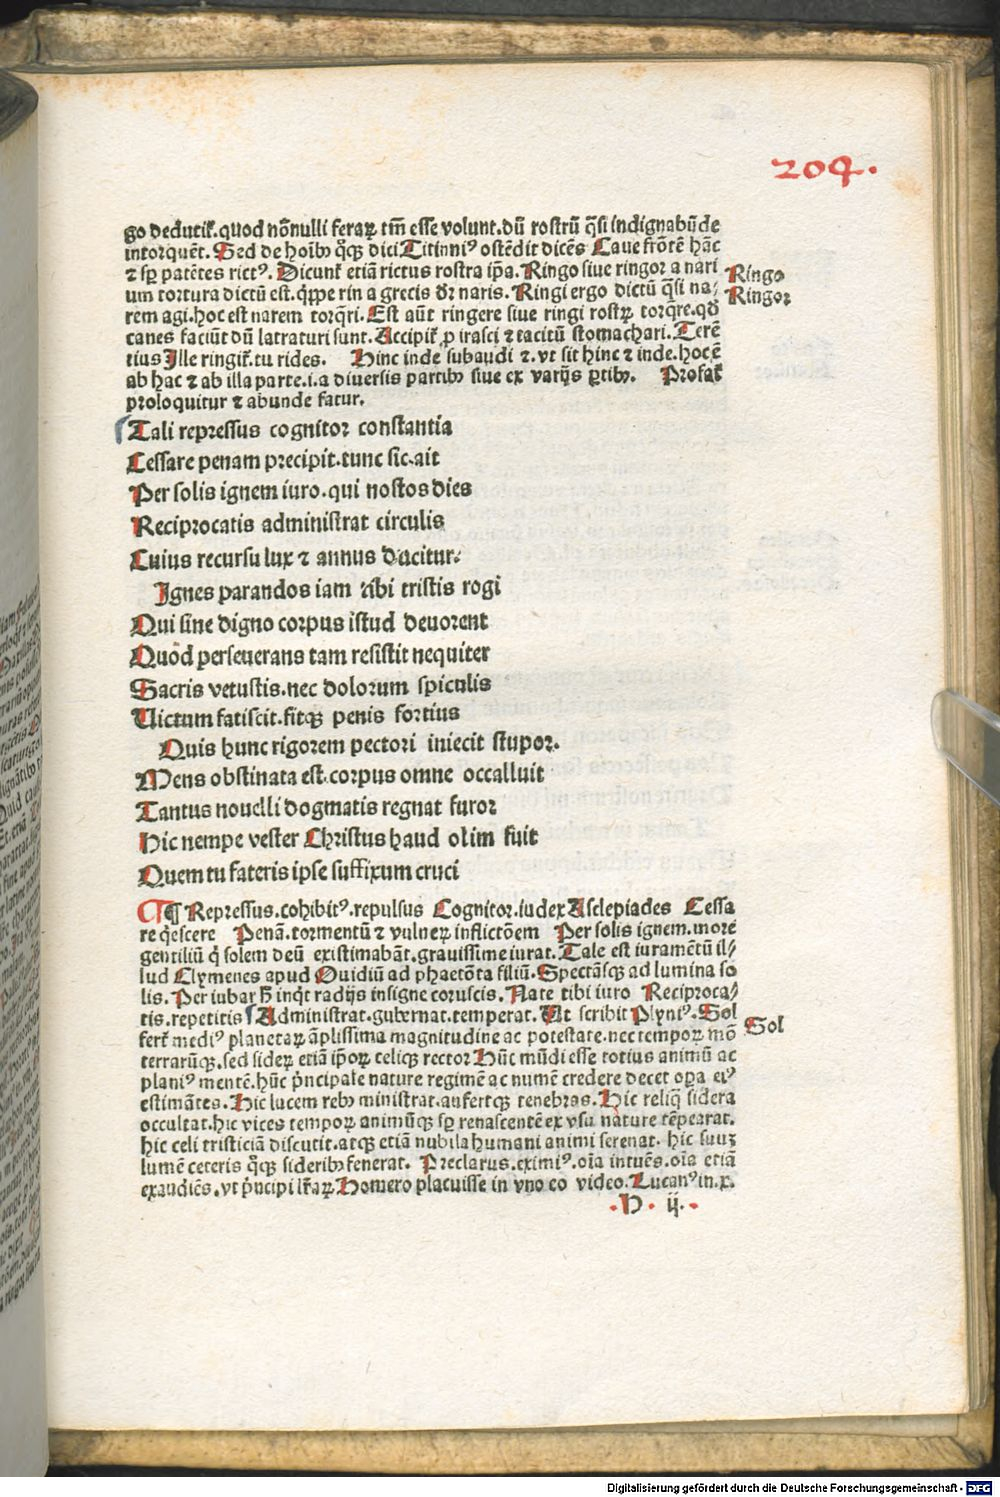 204.
go deducitͬ. quod nōnulli feraꝝ tm̄ esse volunt. dū rostrū q̄si indignabūde
intorquēt. Sed de hoīb⁹ q̄q̢ dici Titinni⁹ ostēdit dicēs Caue frōtē hāc
⁊ sꝑ patētes rict⁹. Dicunt̄ etiā rictus rostra ip̄a. Ringo siue ringor a nari
um tortura dictū est. q̄ppe rin a grecis dr̄ naris. Ringi ergo dictū q̄si na/
rem agi. hoc est narem torq̄ri. Est aūt ringere siue ringi rostꝝ torq̄re. qd̄
canes faciūt dū latraturi sunt. Accipit̄ ꝓ irasci ⁊ tacitū stomachari. Terē
tius Ille ringit̄. tu rides. Hinc inde subaudi ⁊. vt sit hinc ⁊ inde. hoc ē
ab hac ⁊ ab illa parte. i. a diuersis partib⁹ siue ex varijs ꝑtib⁹. Profat̄
proloquitur ⁊ abunde fatur.
Ringo
Ringor
Tali repressus cognitor constantia
Cessare penam precipit. tunc sic ait
Per solis ignem iuro. qui nostos dies
Reciprocatis administrat circulis
Cuius recursu lux ⁊ annus ducitur.
Ignes parandos iam tibi tristis rogi
Qui sine digno corpus istud deuorent
Quod perseuerans tam resistit nequiter
Sacris vetustis. nec dolorum spiculis
Victum fatiscit. fitq̢ penis fortius
Quis hunc rigorem pectori iniecit stupor.
Mens obstinata est. corpus omne occalluit
Tantus nouelli dogmatis regnat furor
Hic nempe vester Christus haud olim fuit
Quem tu fateris ipse suffixum cruci
¶ Repressus. cohibit⁹. repulsus Cognitor. iudex Asclepiades Cessa
re q̄escere Penā. tormentū ⁊ vulneꝝ inflictōem Per solis ignem. more
gentiliū q̄ solem deū existimabāt. grauissime iurat. Tale est iuramētū il/
lud Clymenes apud Ouidiū ad phaetōta filiū. Spectāsq̢ ad lumina so
lis. Per iubar h̄ inq̄t radijs insigne coruscis. Nate tibi iuro Reciproca/
tis. repetitis Administrat. gubernat. temperat. Vt scribit Plyni⁹. Sol
fert̄ medi⁹ planetaꝝ āplissima magnitudine ac potestate. nec tempoꝝ mō
terrarūq̢. sed sideꝝ etiā ip̄oꝝ celiq̢ rector Hūc mūdi esse totius animū ac
plani⁹ mentē. hūc p̄ncipale nature regimē ac numē credere decet oꝑa ei⁹
estimātes. Hic lucem reb⁹ ministrat. aufertq̢ tenebras. Hic reliq̄ sidera
occultat. hic vices tempoꝝ animūq̢ sꝑ renascentē ex vsu nature tēperat.
hic celi tristiciā discutit. atq̢ etiā nubila humani animi serenat. hic suuꝫ
lumē ceteris q̄q̢ siderib⁹ fenerat. Preclarus. eximi⁹. oīa intuēs. oīa etiā
exaudiēs. vt p̄ncipi lr̄aꝝ Homero placuisse in vno eo video. Lucan⁹ in. x.
Sol
H ij.
Digitalisierung gefördert durch die Deutsche Forschungsgemeinschaft - DFG